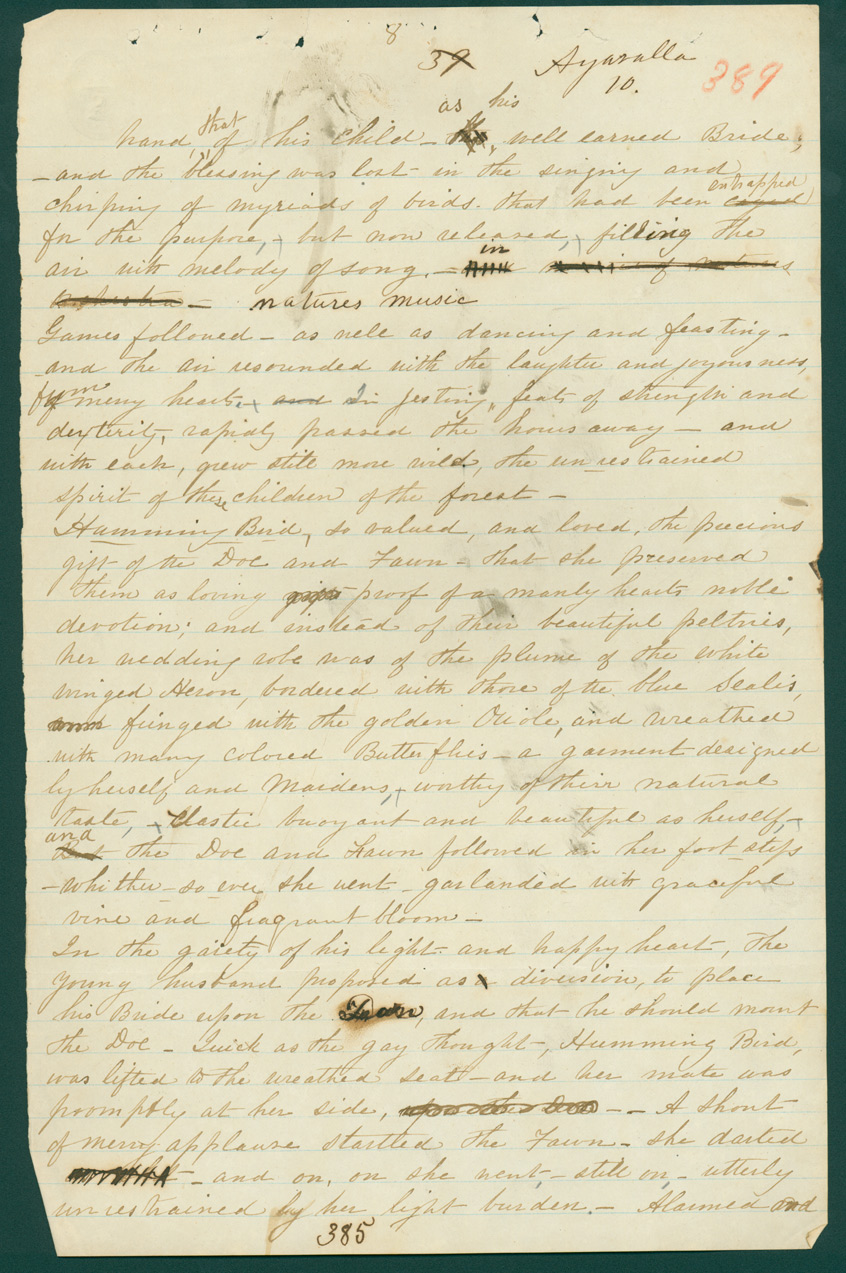 8
39 Ayaralla
10. 389
as his
hand, that of his child - well earned Bride;
- and the blessing was lost in the singing and
chirping of myriads of birds. that had been caged entrapped
for the purpose, - but now released, filling the
air with melody of song. - in
orchestra - natures music
Games followed - as well as dancing and feasting -
and the air resounded with the laughter and joyousness,
from merry hearts. and In jesting, feats of strength and
dexterity, rapidly passed the hours away - and
with each, grew still more wild, the unrestrained
spirit of these children of the forest -
Humming Bird, so valued, and loved, the precious
gift of the Doe and Fawn - that she preserved
them as loving proof of a manly hearts noble
devotion; and instead of their beautiful peltries,
her wedding robe was of the plume of the white
winged Heron, bordered with those of the blue Sealis,
fringed with the golden Oriole, and wreathed
with many colored Butterflies - a garment designed
by herself and Maidens, worthy of their natural
taste, - Elastic buoyant and beautiful as herself, -
and But the Doe and Fawn followed in her foot steps
- whither - so ever she went - garlanded with graceful
vine and fragrant bloom -
In the gaiety of his light and happy heart, the
young husband proposed as a division, to place
his Bride upon the Fawn, and that he should mount
the Doe - Quick as the gay thought, Humming Bird,
was lifted to the wreathed seat - and her mate was
promptly at her side, upon the Doe - - A shout
of merry applause startled the Fawn - she darted
- and on, on she went, - still on, - utterly
unrestrained by her light burden. - Alarmed and
385